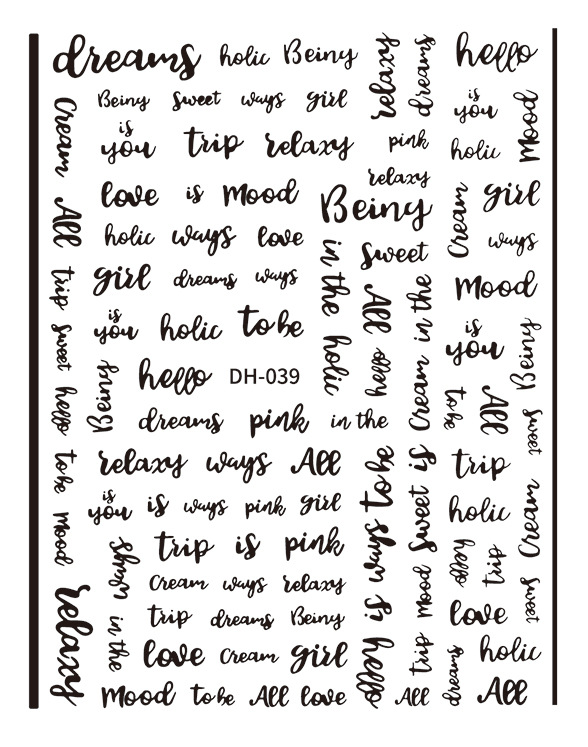 dreams holic Beiny relaxy dreams hello
Beiny sweet ways girl is you Mood
Cream is you trip relaxy pink holic
relaxy
love is Mood Beiny Cream girl
All holic ways love in the sweet ways
girl dreams ways All Cream in the Mood
trip is you holic to be holic hello is you Beiny
sweet Beiny hello DH-039 to be All
hello dreams pink in the sweet
to be relaxy ways All hello is ways to be Sweet is trip
Mood is you is ways pink girl holic Cream
ways trip is pink Mood hello trip
Cream ways relaxy sweet
relaxy in the trip dreams Beiny love
love Cream girl trip dreams holic
Mood to be All love All All